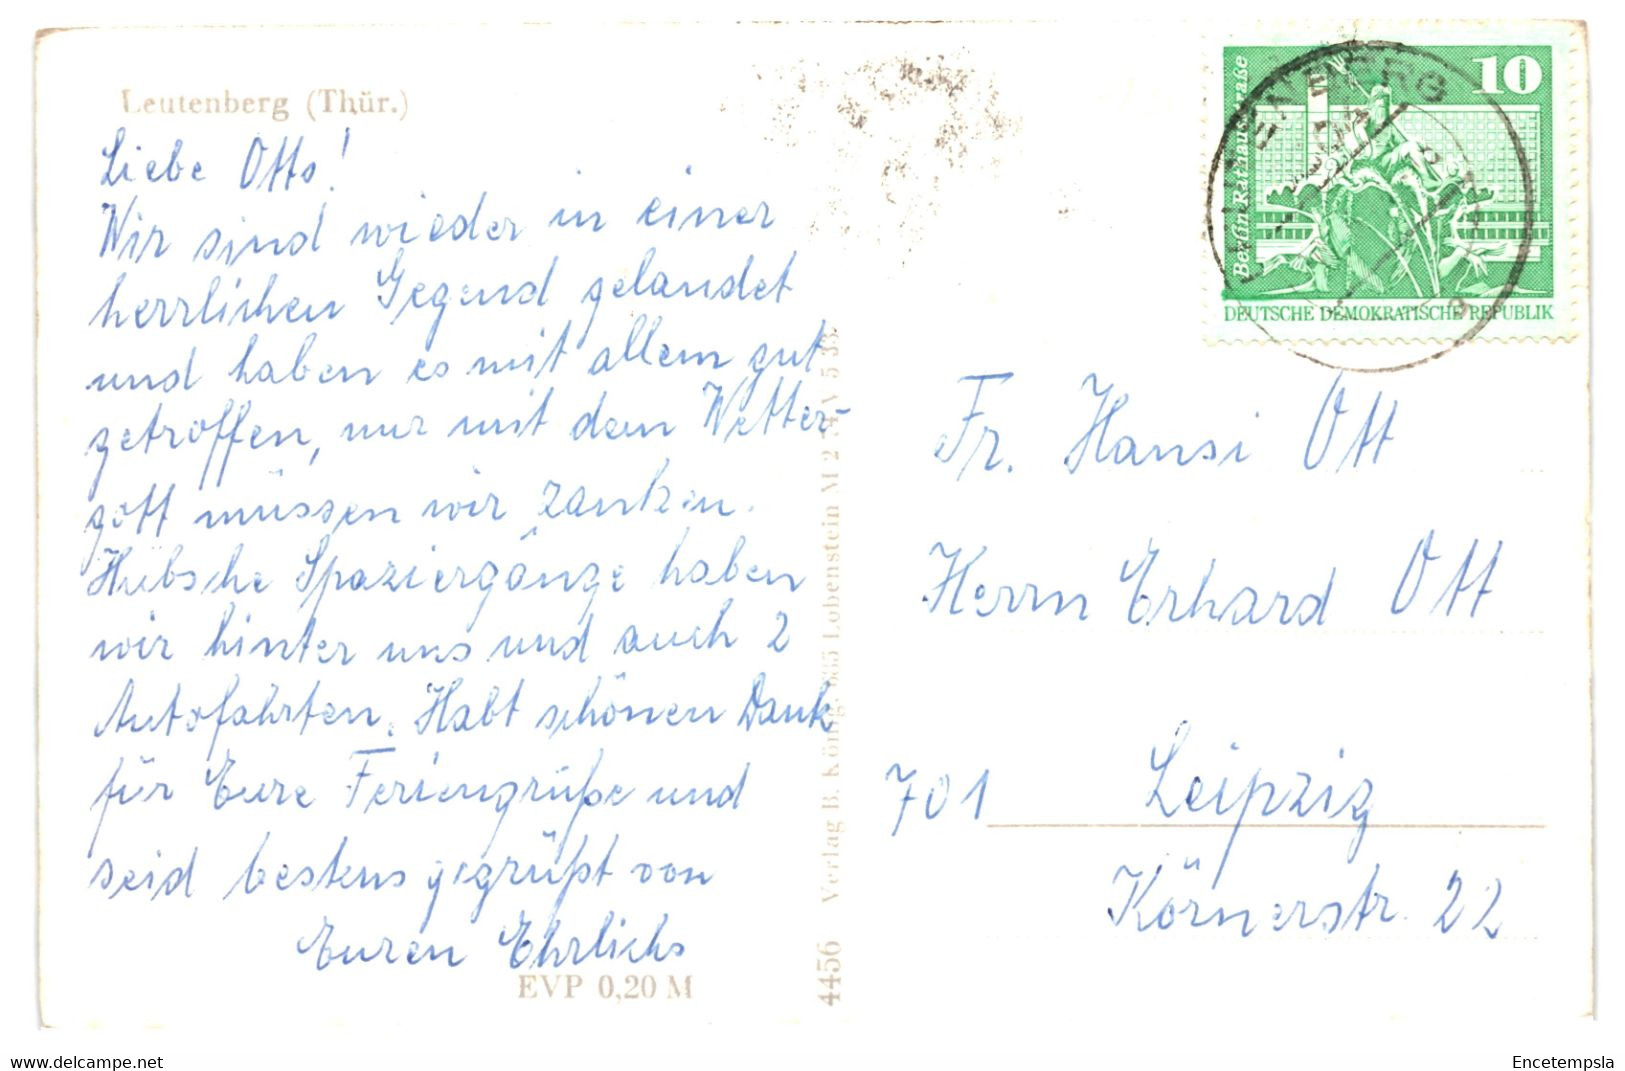 Leutenberg (Thür.)
Liebe Otts!
Wir sind wieder in einer
herrlichen Gegend gelandet
und haben es mit allem gut
getroffen, nur mit dem Wetter-
gott müssen wir zanken.
Hübsche Spaziergänge haben
wir hinter uns und auch 2
Autofahrten. Habt schönen Dank
für Eure Feriengrüße und
seid bestens gegrüßt von
Euren Ehrlichs
EVP 0,20 M
4456 Verlag B. König, 685 Lobenstein M
10
Berlin, Rathausstraße
DEUTSCHE DEMOKRATISCHE REPUBLIK
LEUTENBERG
Fr. Hansi Ott
Herrn Erhard Ott
701 Leipzig
Körnerstr. 22
www.delcampe.net
Encetempsla